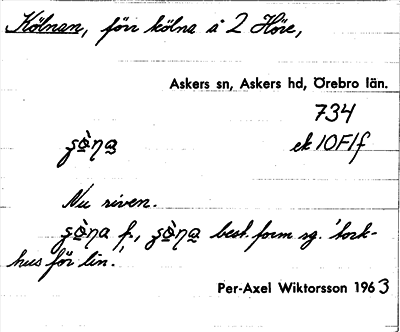 Kölnan, förr kölna å 2 Höre,
Askers sn, Askers hd, Örebro län.
734
ek 10F1f
Nu riven.
best. form sg. 'tork-
hus för lin.'
Per-Axel Wiktorsson 1963